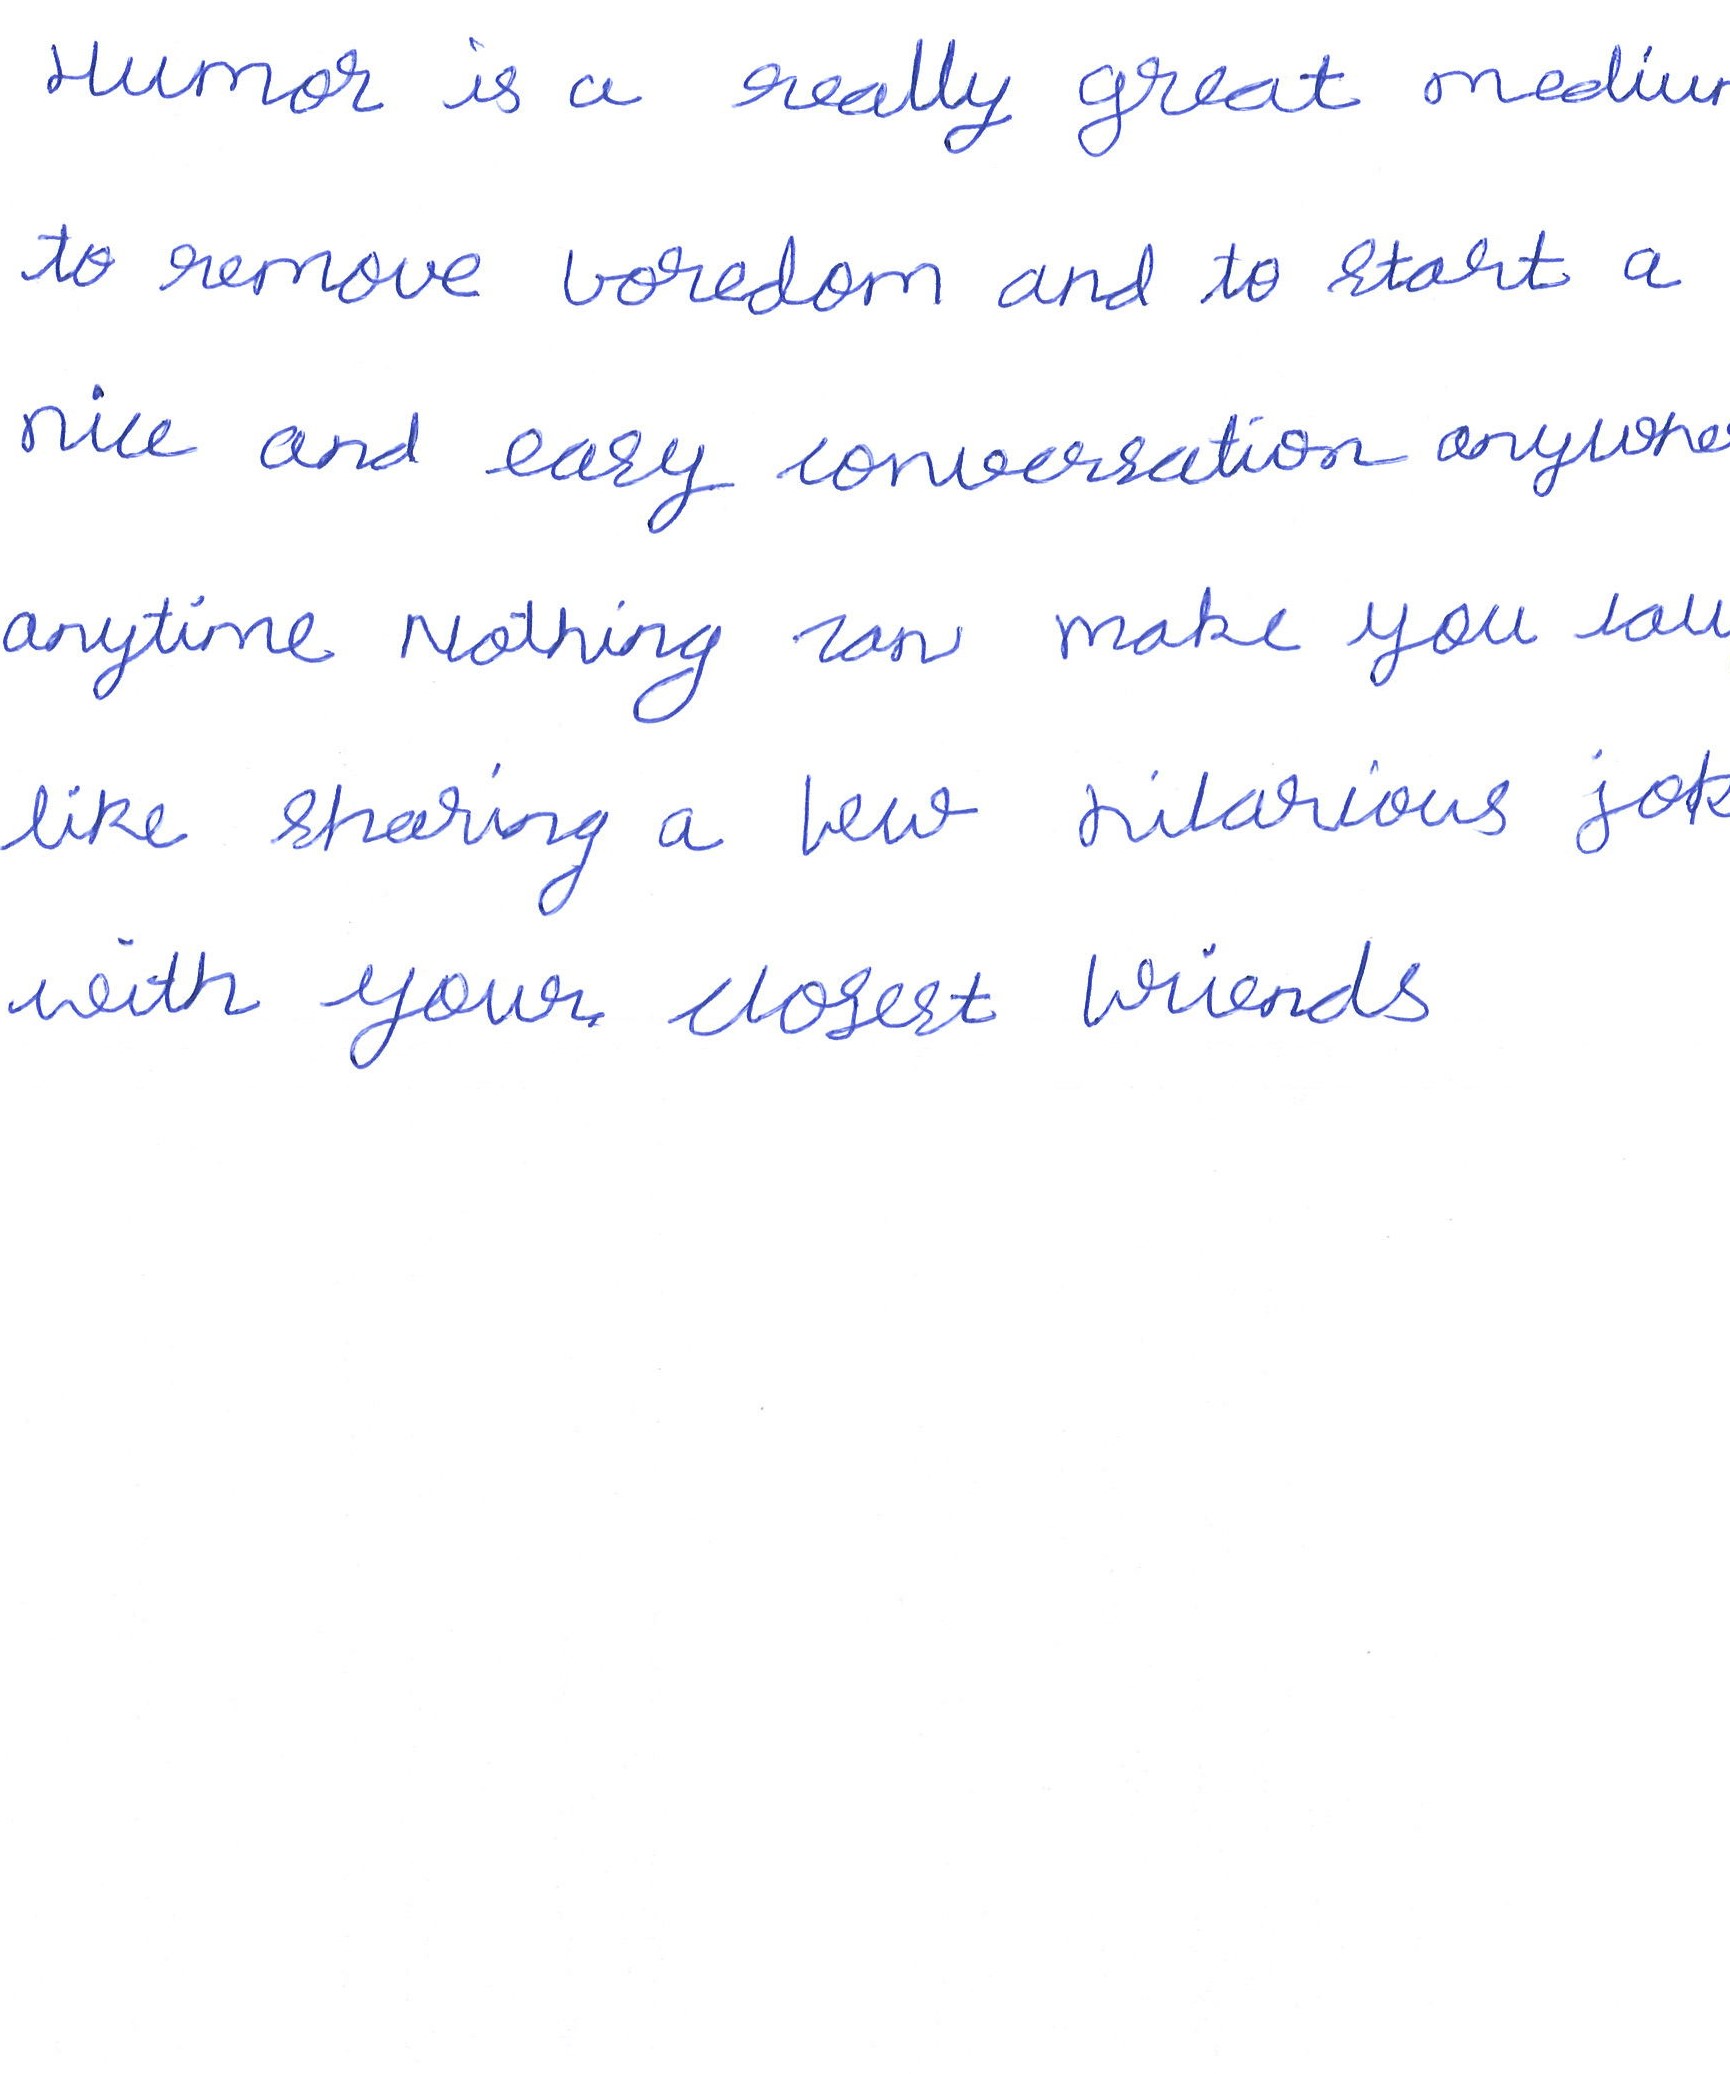 Humor is a really great medium
to remove boredom and to start a
nice and easy conversation anywhere
anytime Nothing can make you
like sharing a few hilarious
with your closest friends